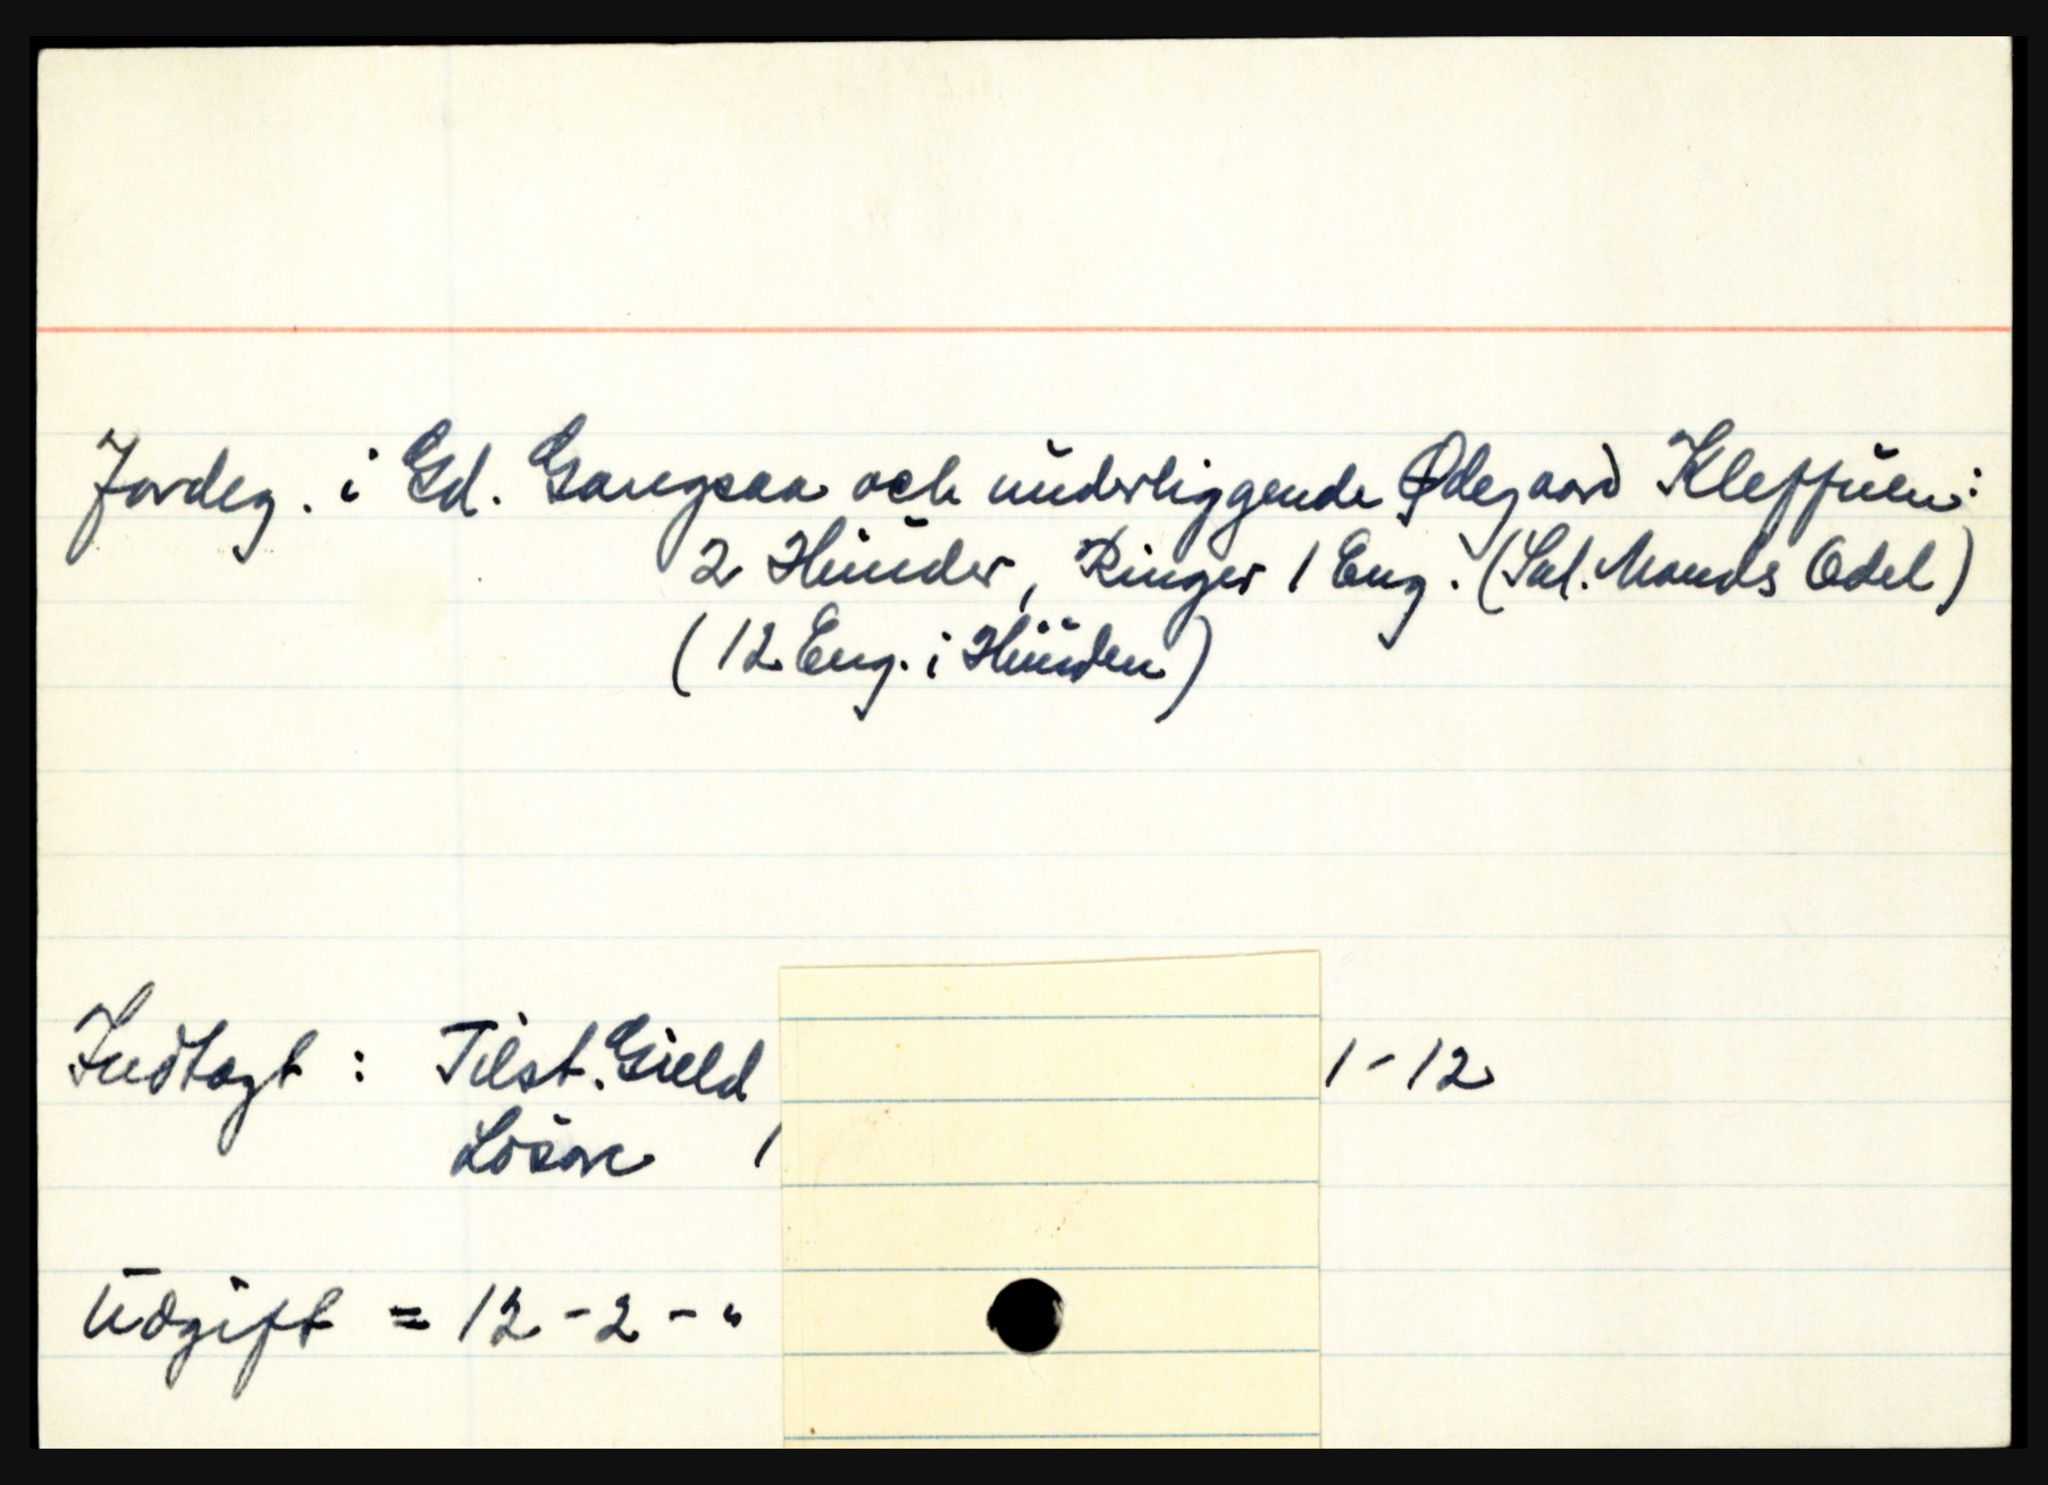 Jordeg. i Gd. Gangsaa och underliggende Ødegaard Kleffuen:
2 Hŭuder, Ringer 1 Eng. (Sal. Mands Odel)
(12 Eng. i Hŭuden)
Indtagt: Tilst. Gield 1-12
Lösøre
Udgift = 12 - 2 - "